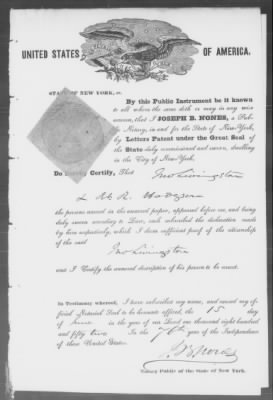 UNITED STATES OF AMERICA.
STATE OF NEW YORK, ss.
By this Public Instrument be it known
to all whom the same doth or may in any wise
concern, that I JOSEPH B. NONES, a Pub-
lic Notary, in and for the State of New-York,
by Letters Patent under the Great Seal of
the State duly commissioned and sworn, dwelling
in the City of New-York,
Do hereby Certify, That Jno Livingston
& R. Hodgson
the persons named in the annexed papers, appeared before me, and being
duly sworn severally to Law, each subscribed the declaration made
by him respectively, which I deem sufficient proof of the citizenship
of the said
Jno Livingston
and I Certify the annexed description of his person to be correct.
In Testimony whereof, I have subscribed my name, and caused my of-
ficial Notarial Seal to be hereunto affixed, the 15 day
of June in the year of our Lord one thousand eight hundred
and fifty two In the 76th year of the Independence
of these United States.
J B Nones
Notary Public of the State of New York.